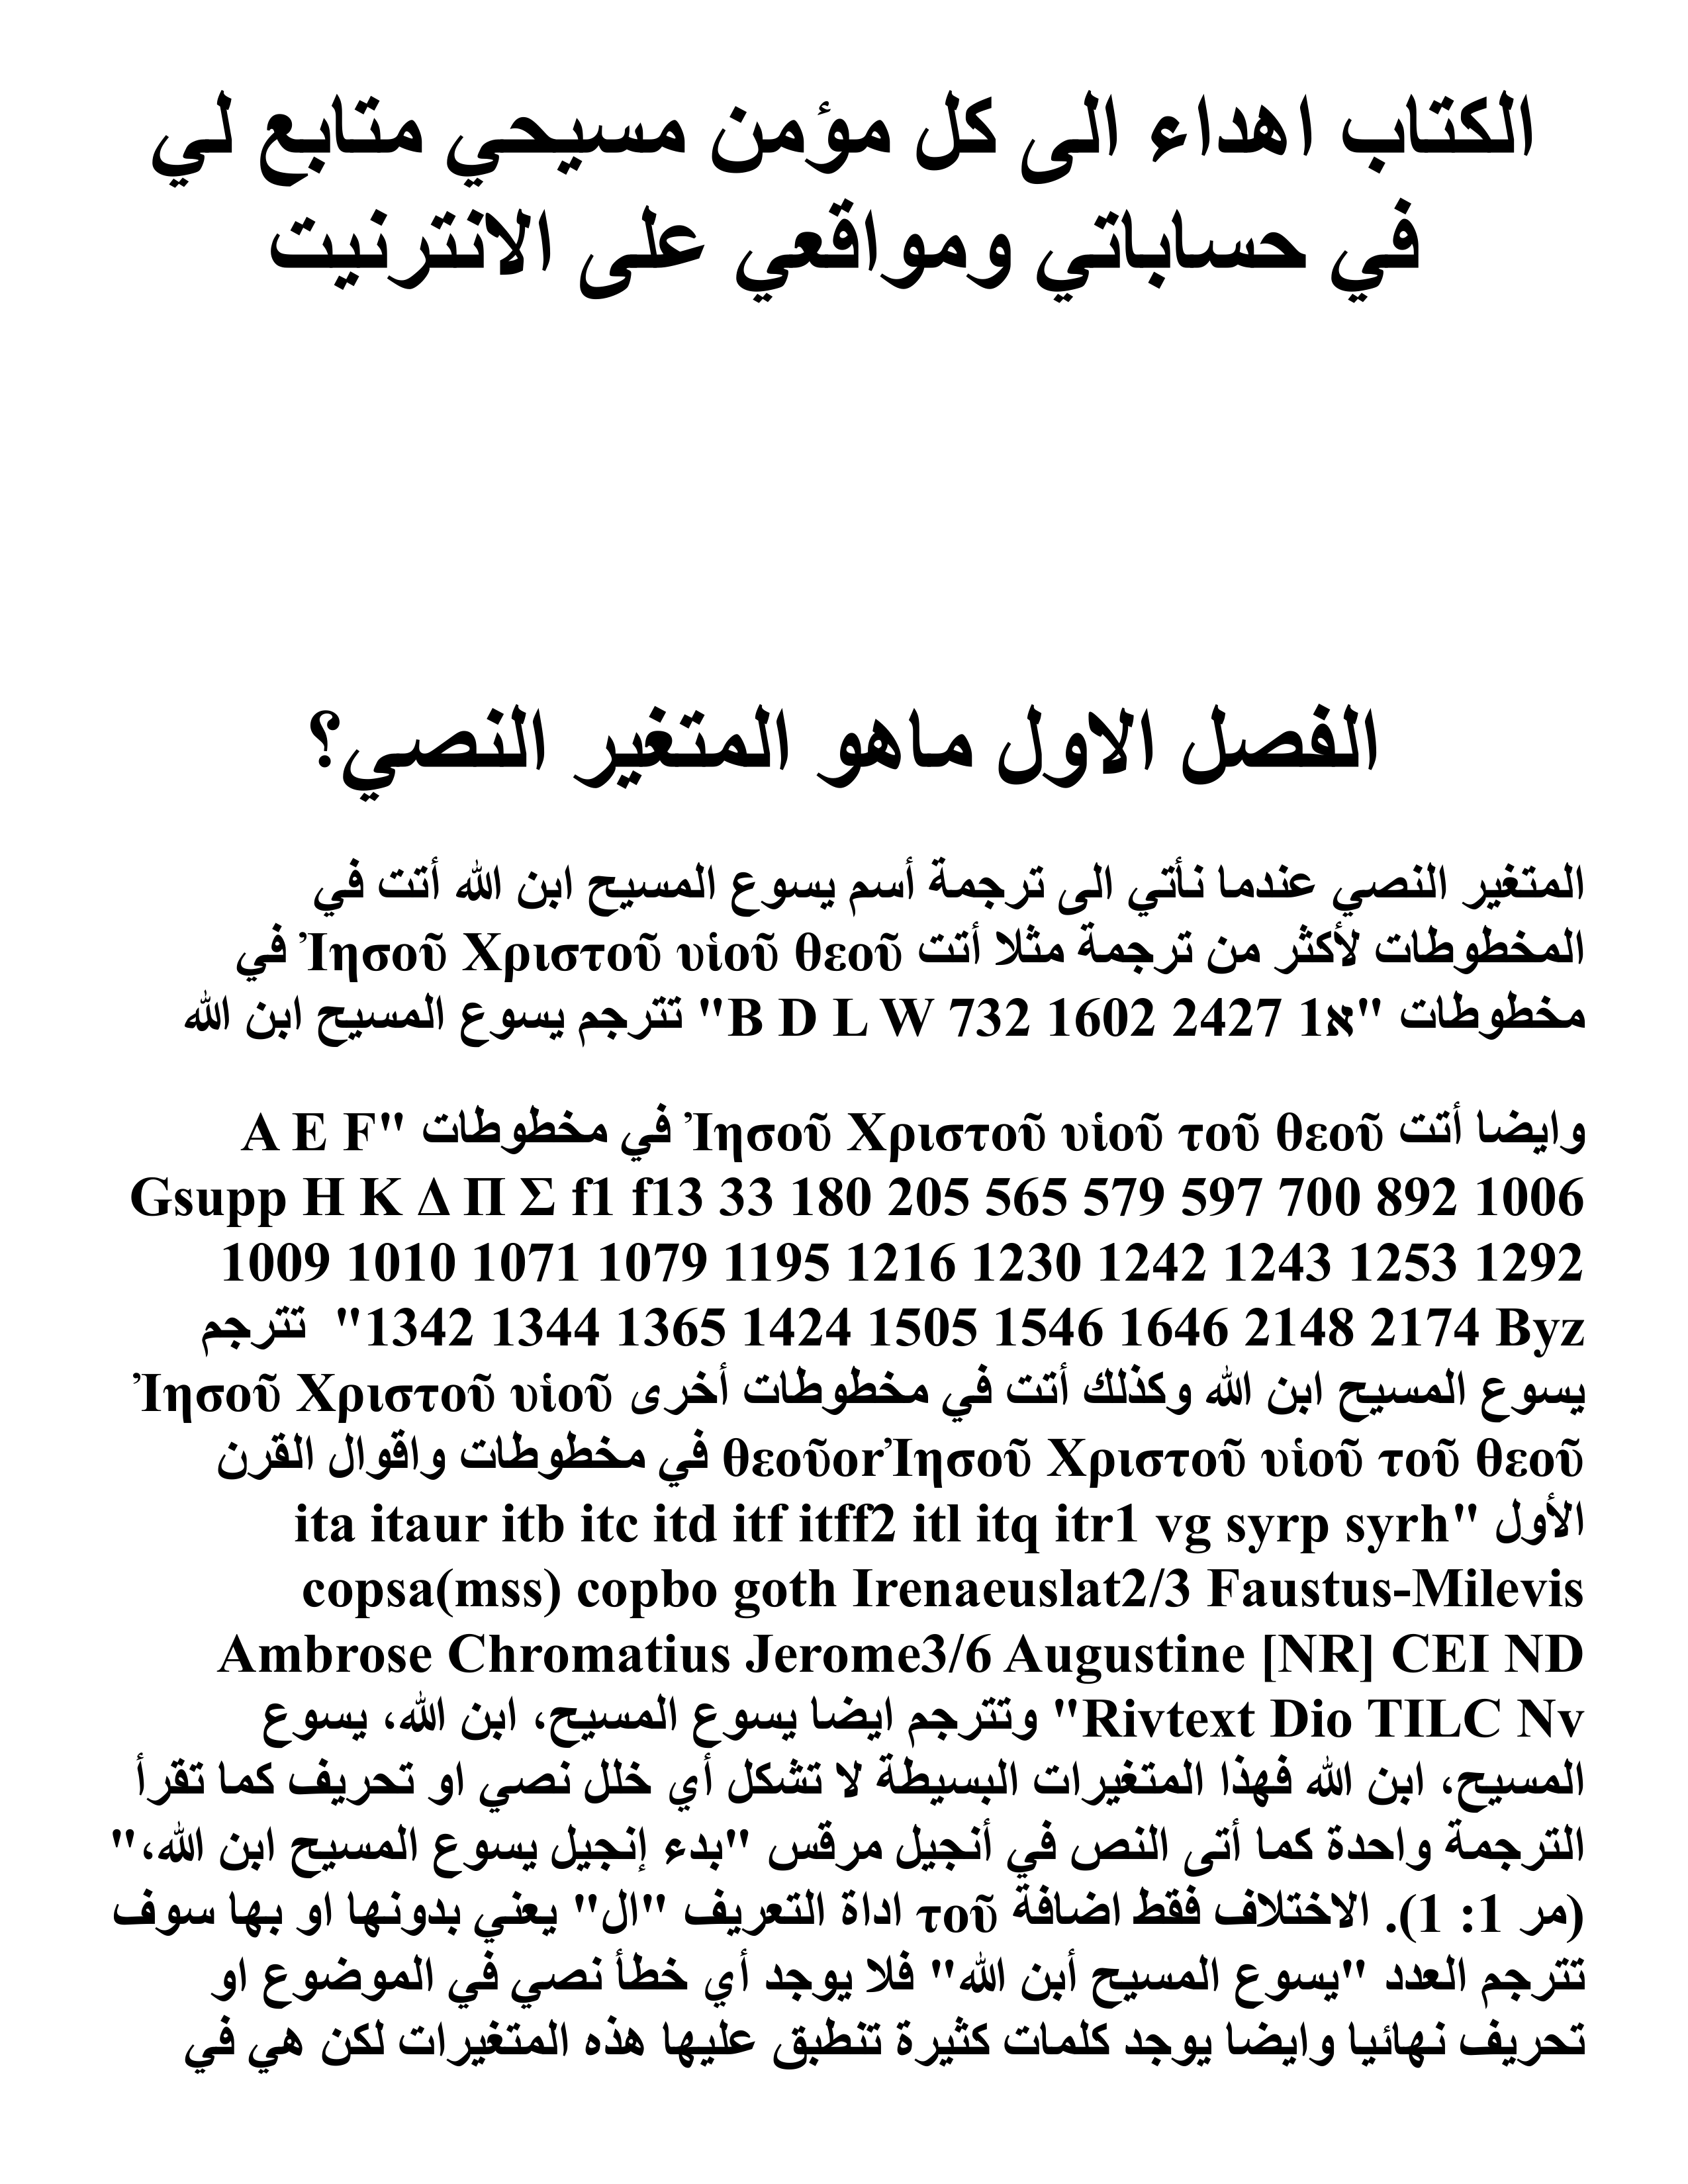 الكتاب اهداء الى كل مؤمن مسيحي متابع لي
في حساباتي ومواقعي على الانترنيت
الفصل الاول ماهو المتغير النصي؟
المتغير النصي عندما نأتي الى ترجمة أسم يسوع المسيح ابن الله أتت في
المخطوطات لأكثر من ترجمة مثلا أتت Ἰησοῦ Χριστοῦ υἱοῦ θεοῦ في
مخطوطات "א1 B D L W 732 1602 2427" تترجم يسوع المسيح ابن الله
وايضا أتت Ἰησοῦ Χριστοῦ υἱοῦ τοῦ θεοῦ في مخطوطات "A E F
Gsupp H K Δ Π Σ f1 f13 33 180 205 565 579 597 700 892 1006
1009 1010 1071 1079 1195 1216 1230 1242 1243 1253 1292
1342 1344 1365 1424 1505 1546 1646 2148 2174 Byz" تترجم
يسوع المسيح ابن الله وكذلك أتت في مخطوطات أخرى Ἰησοῦ Χριστοῦ υἱοῦ
θεοῦorἸησοῦ Χριστοῦ υἱοῦ τοῦ θεοῦ في مخطوطات واقوال القرن
الأول "ita itaur itb itc itd itf itff2 itl itq itr1 vg syrp syrh
copsa(mss) copbo goth Irenaeuslat2/3 Faustus-Milevis
Ambrose Chromatius Jerome3/6 Augustine [NR] CEI ND
Rivtext Dio TILC Nv" وتترجم ايضا يسوع المسيح، ابن الله، يسوع
المسيح، ابن الله فهذا المتغيرات البسيطة لا تشكل أي خلل نصي او تحريف كما تقرأ
الترجمة واحدة كما أتى النص في أنجيل مرقس "بدء إنجيل يسوع المسيح ابن الله،"
(مر 1: 1). الاختلاف فقط اضافة τοῦ اداة التعريف "ال" يعني بدونها او بها سوف
تترجم العدد "يسوع المسيح أبن الله" فلا يوجد أي خطأ نصي في الموضوع او
تحريف نهائيا وايضا يوجد كلمات كثيرة تنطبق عليها هذه المتغيرات لكن هي في